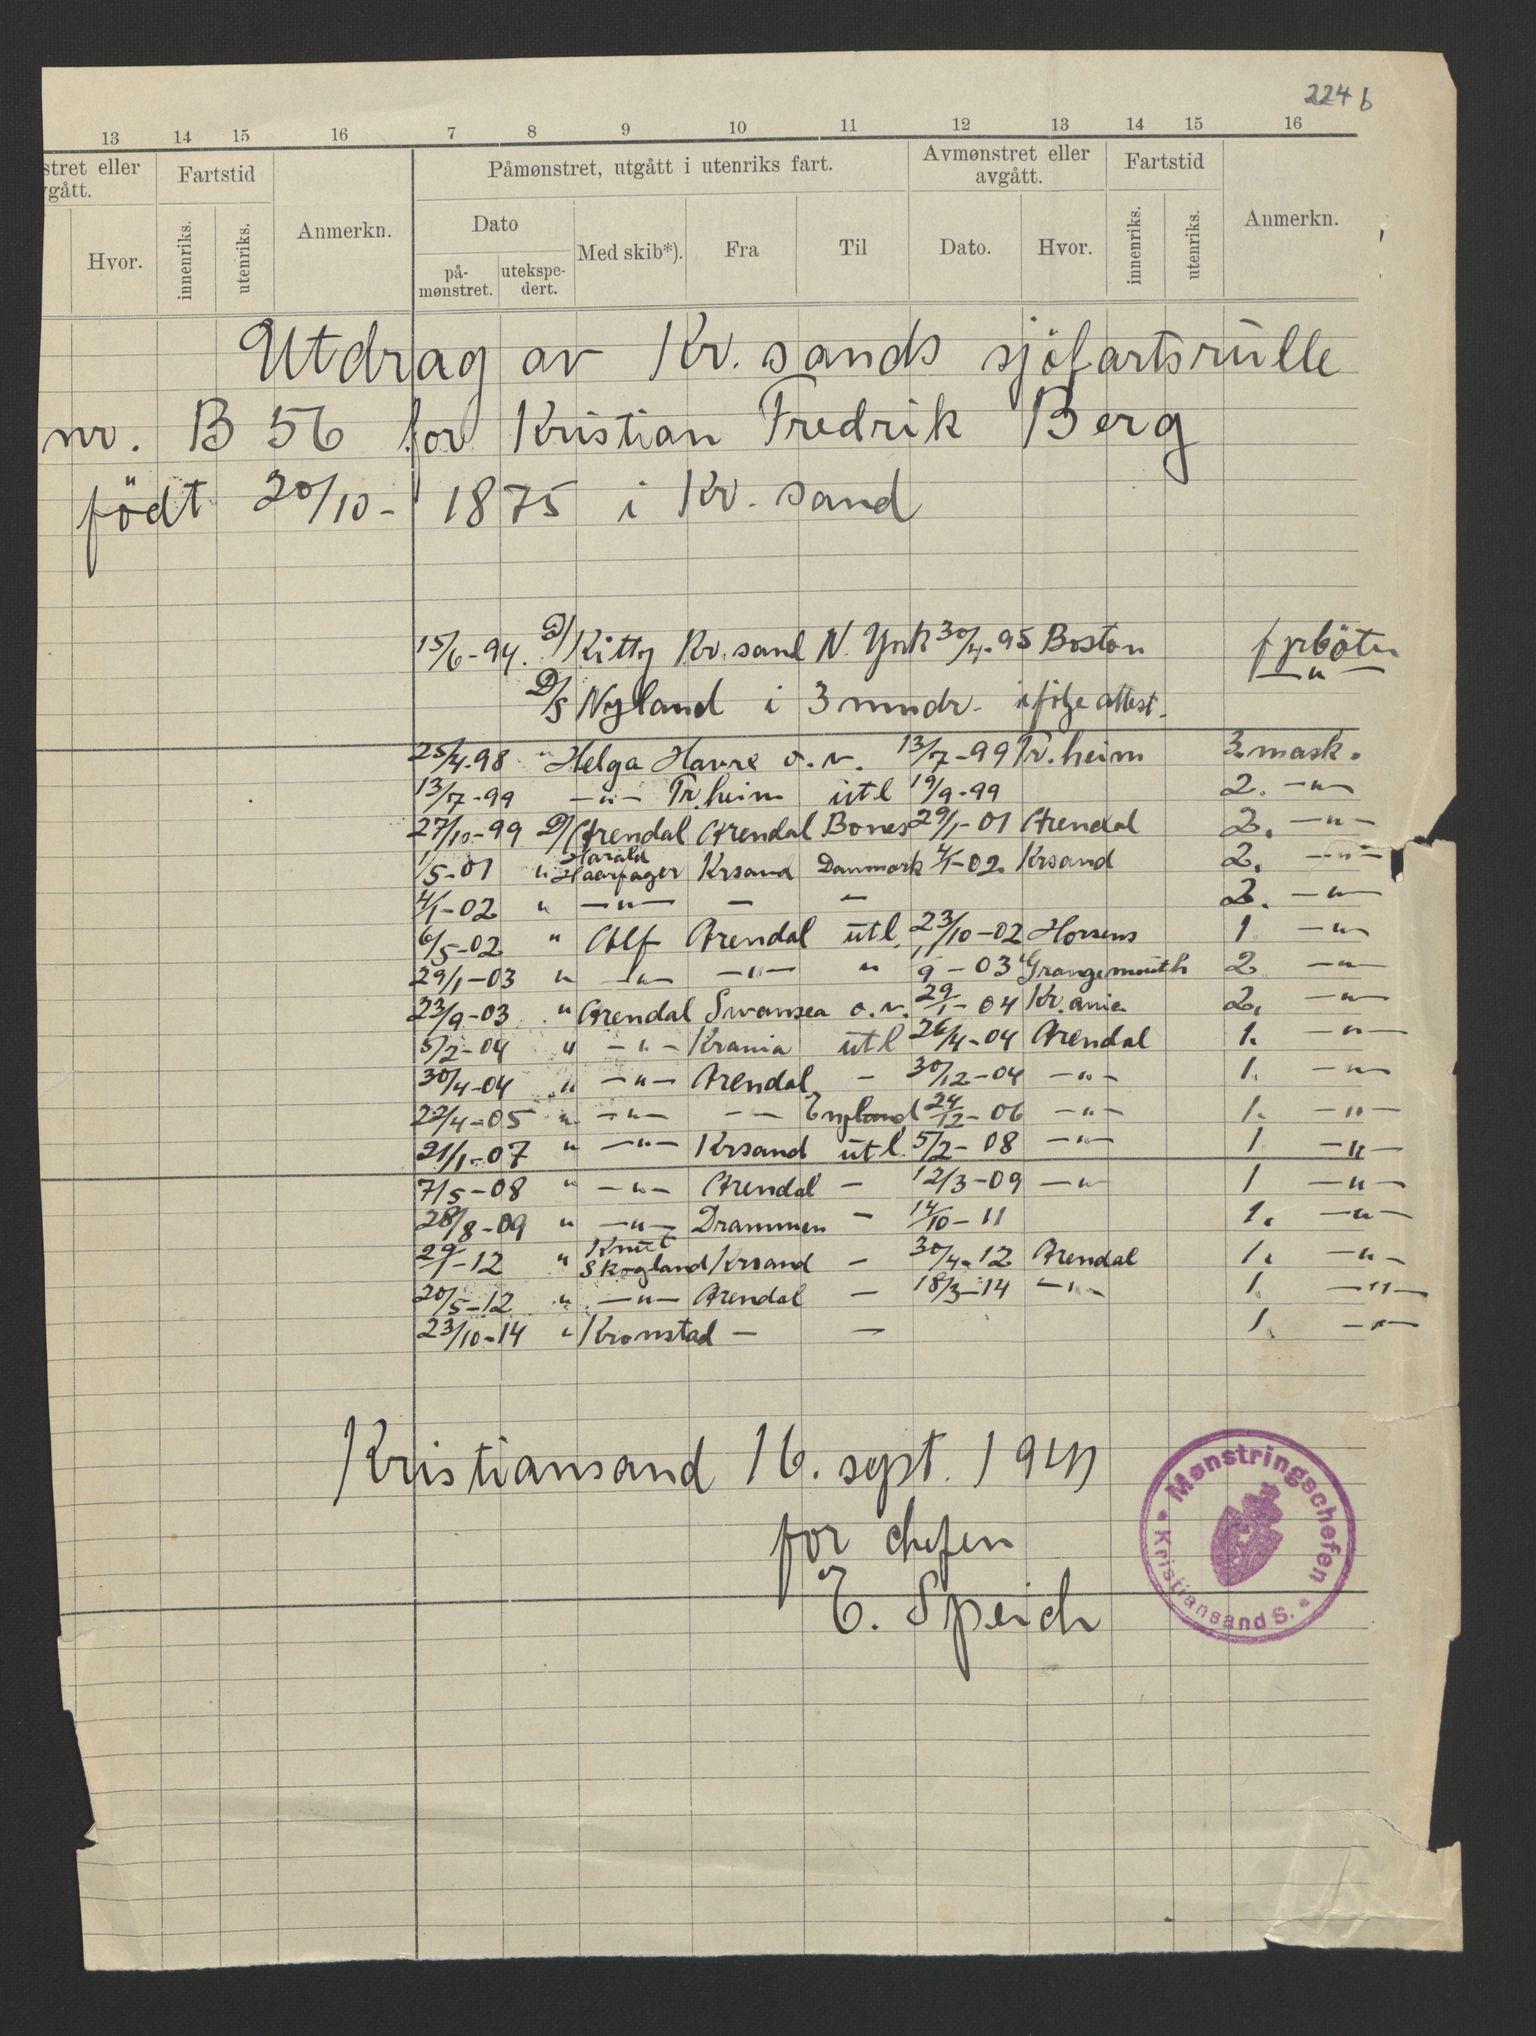 224 b
13 14 15 16 7 8 9 10 11 12 13 14 15 16
stret eller Fartstid Påmønstret, utgått i utenriks fart. Avmønstret eller Fartstid
gått. avgått.
Hvor. innenriks. utenriks. Anmerkn. Dato Med skib*). Fra Til Dato. Hvor. innenriks. utenriks. Anmerkn.
på- utekspe-
mønstret. dert.
Utdrag av Kr. sands sjöfartsrulle
nr. B 56 for Kristian Fredrik Berg
födt 20/10- 1875 i Kr. sand
15/6-94. D/ Kitty Kr. sand N. York 30/4-95 Boston fyrböter
D/S Nyland i 3 mndr. ifölge attest. —"—
25/4-98 " Helga Havre o. v. 13/7-99 Tr. heim 3. mask.
13/7-99 —"— Tr. heim utl 19/9-99 2. —"—
27/10-99 D/ Arendal Arendal Bones 29/1-01 Arendal 2. —"—
1/5-01 " Harald Haarfager Krsand Danmark 4/1-02 Krsand 2. —"—
4/1-02 " —"— — — 2. —"—
6/5-02 " Alf Arendal utl. 23/10-02 Horsens 1 —"—
29/1-03 " —"— —"— " 1/9-03 Grangemouth 2 —"—
23/9-03 " Arendal Swansea o. v. 29/1-04 Kr. ania 2. —"—
5/2-04 " —"— Krania utl 26/4-04 Arendal 1. —"—
30/4-04 " —"— Arendal — 30/12-04 —"— 1. —"—
22/4-05 " —"— —— England 24/12-06 —"— 1. —"—
21/1-07 " —"— Krsand utl. 5/2-08 —"— 1 —"—
7/5-08 " —"— Arendal — 12/3-09 —"— 1 —"—
28/8-09 " —"— Drammen — 14/10-11 1. —"—
29/1-12 " Knut Skogland Krsand — 30/4-12 Arendal 1. —"—
20/5-12 " —"— Arendal — 18/3-14 —"— 1. —"—
23/10-14 " Kronstad — — 1. —"—
Kristiansand 16. sept.
for chefen
E. Speich
Mønstringschefen
Kristiansand S.